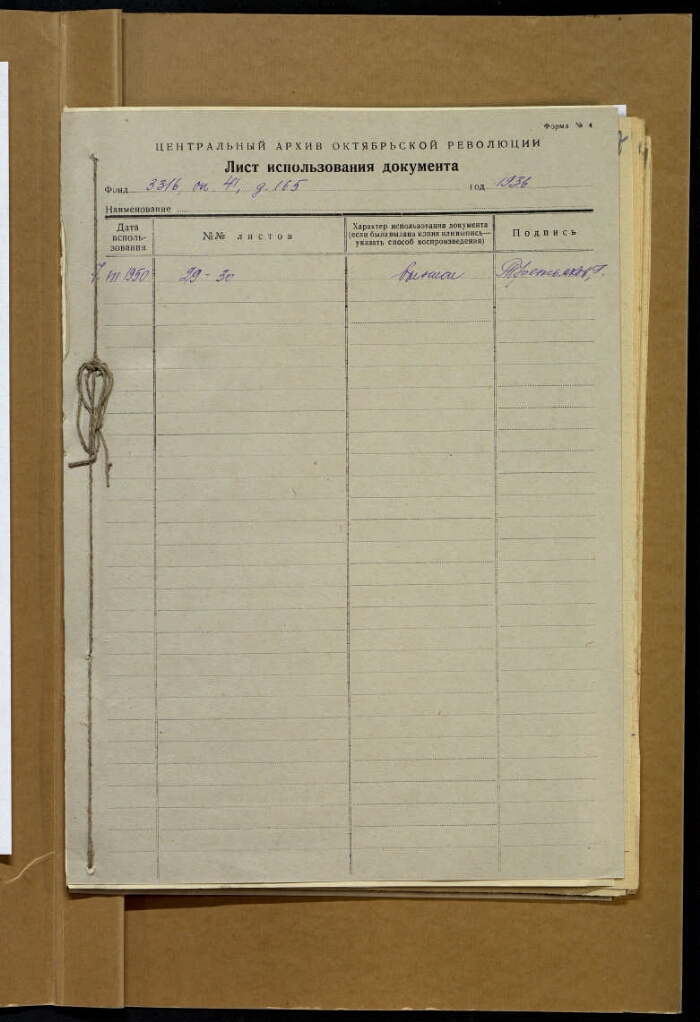 Форма № 4
ЦЕНТРАЛЬНЫЙ АРХИВ ОКТЯБРЬСКОЙ РЕВОЛЮЦИИ
Лист использования документа
Фонд 3316, оп. 41, д. 165 год 1936
Наименование
Дата
исполь-
зования
№№ листов
Характер использования документа
(если была вызвана копия или выпись—
указать способ воспроизведения)
Подпись
7/VIII 1950 29-30